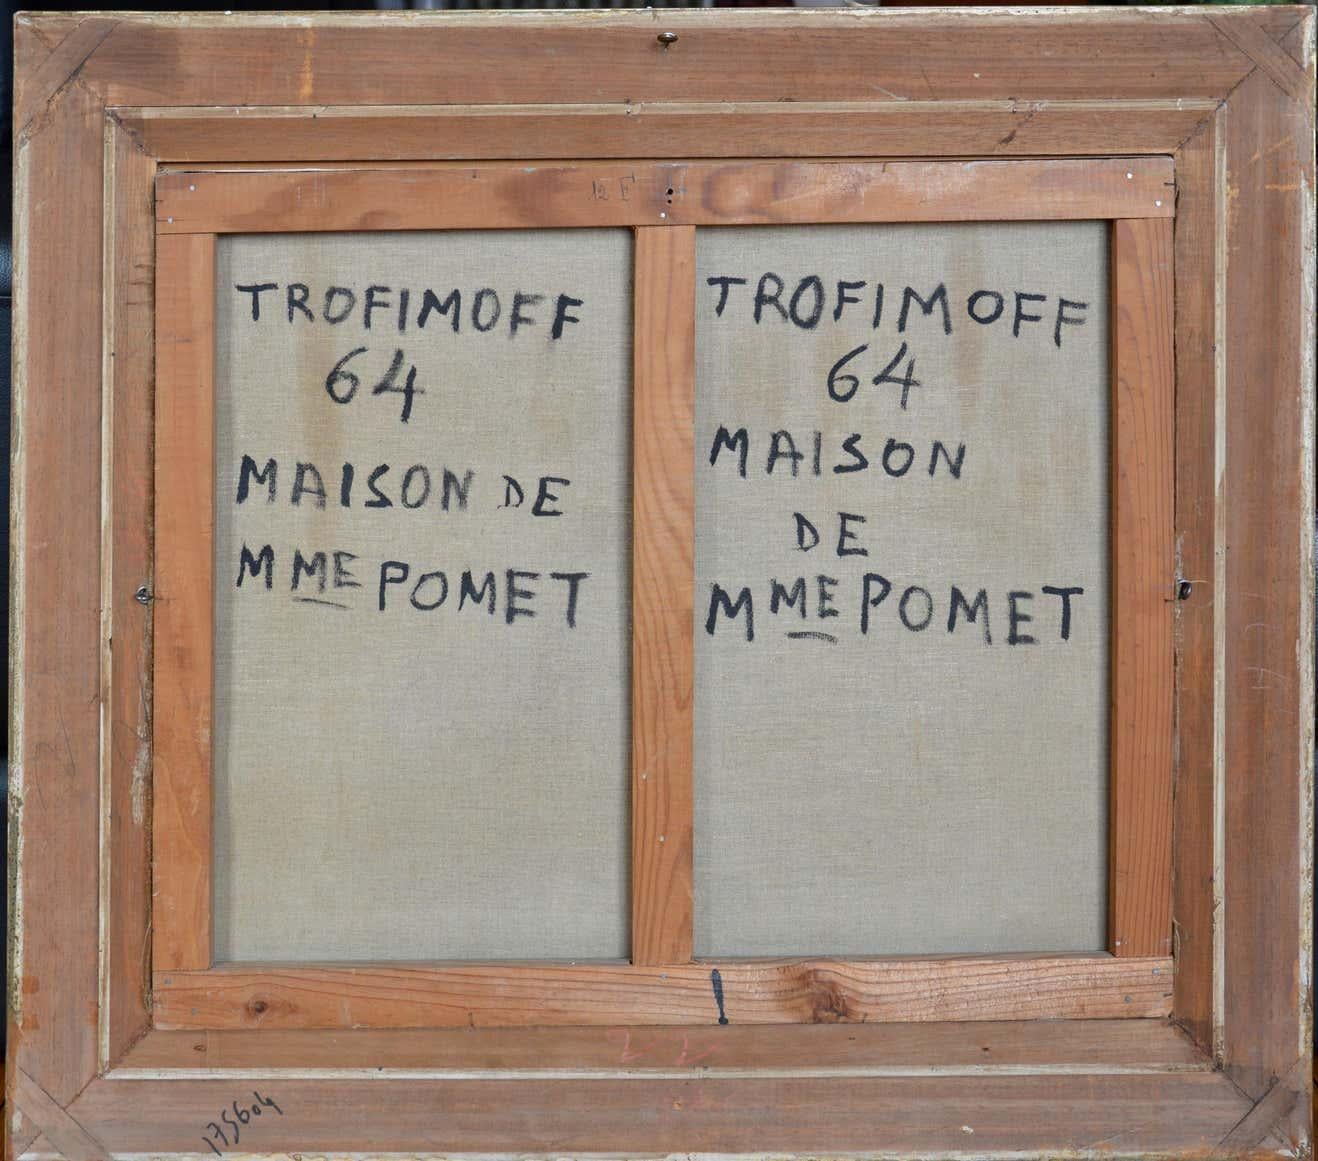 12 F
TROFIMOFF
64
MAISON DE
MME POMET
TROFIMOFF
64
MAISON
DE
MME POMET
!
175604